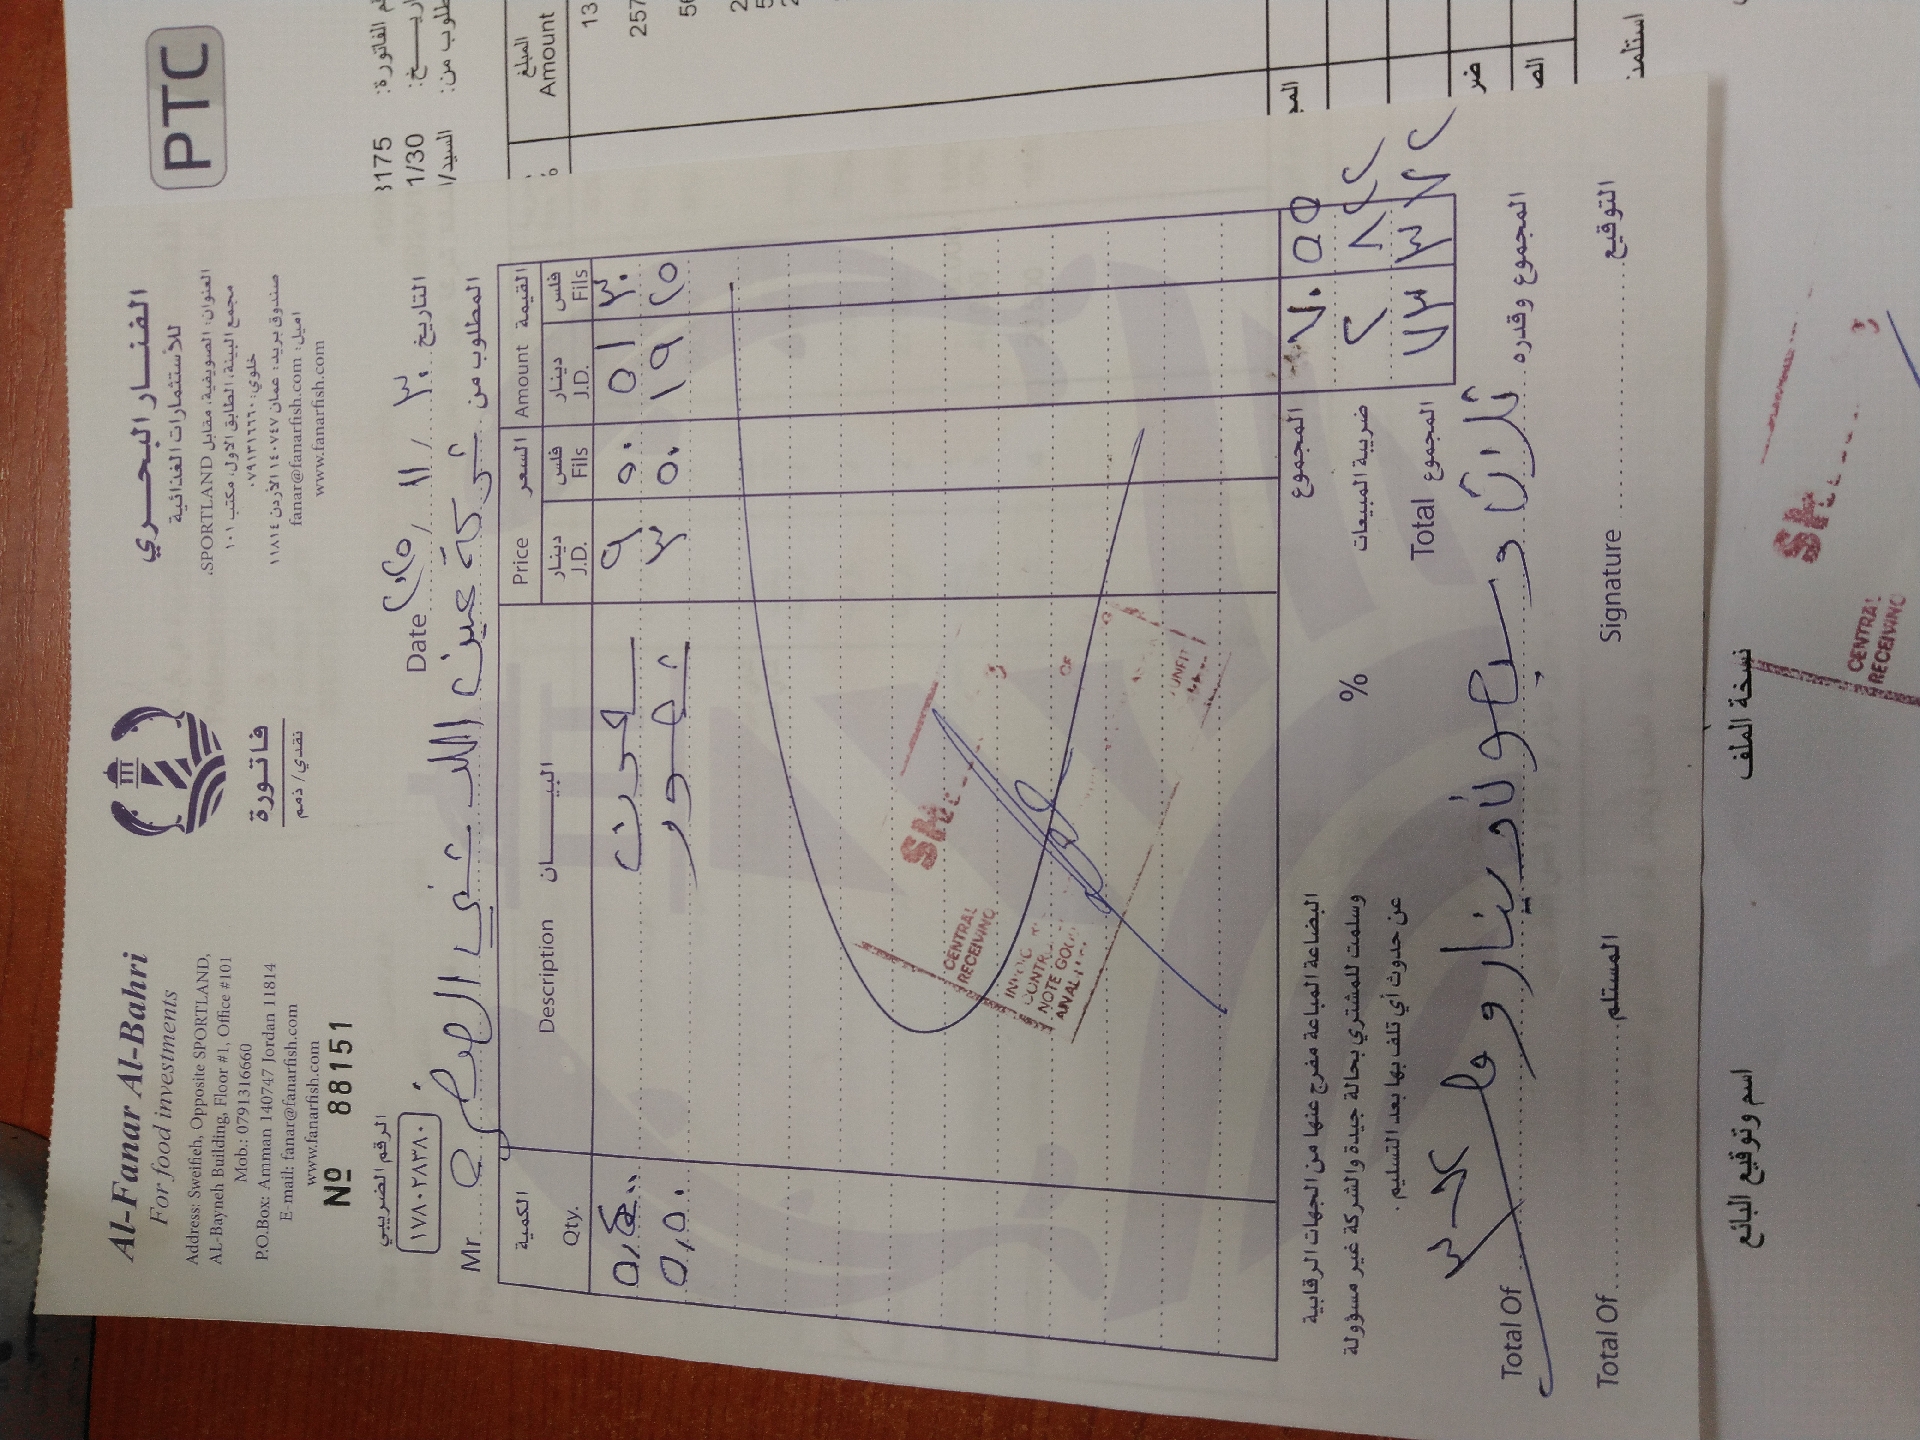 Al-Fanar Al-Bahri
For food investments
Address: Sweifieh, Opposite SPORTLAND,
AL-Bayneh Building, Floor #1, Office #101
Mob.: 0791316660
P.O.Box: Amman 140747 Jordan 11814
E-mail: fanar@fanarfish.com
www.fanarfish.com
Nº 88151
فاتورة
نقدي / ذمم
الفنار البحري
للأستثمارات الغذائية
العنوان: الصويفية، مقابل SPORTLAND،
مجمع البينة، الطابق الاول، مكتب ١٠١
خلوي: ٠٧٩١٣١٦٦٦٠
صندوق بريد: عمان ١٤٠٧٤٧ الأردن ١١٨١٤
اميل: fanar@fanarfish.com
www.fanarfish.com
الرقم الضريبي
١٧٨٠٢٨٣٨٠
Date ٢٠٢٥ / ١١ / ٣٠ التاريخ
Mr. شركة عين المطلوب من
الكمية Qty.
Description البيــــان
Price السعر
دينار J.D. فلس Fils
Amount القيمة
دينار J.D. فلس Fils
٩ ٥٠ ٥١ ٣٠
٣ ٥٠ ١٩ ٢٥
المجموع ٧٠ ٥٥
% ضريبة المبيعات ٢ ٨٢٢
Total المجموع ٧٣ ٣٧٢
البضاعة المباعة مفرج عنها من الجهات الرقابية
وسلمت للمشتري بحالة جيدة والشركة غير مسؤولة
عن حدوث أي تلف بها بعد التسليم.
Total Of ثلاث وسبعون دينار و المجموع وقدره
Total Of المستلم
Signature التوقيع
CENTRAL
RECEIVING
PTC
المبلغ
Amount
3175
1/30
السيد/
اسم وتوقيع البائع
نسخة الملف
CENTRAL
RECEIVING